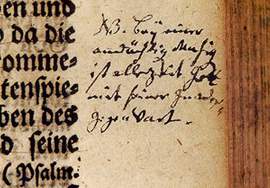 en und
o da die
omme-
tenspie-
ben des
d seine
(Psalm.
NB. Bey einer
andächtig Musig
ist allezeit Gott
mit seiner Gnaden
Gegenwart.